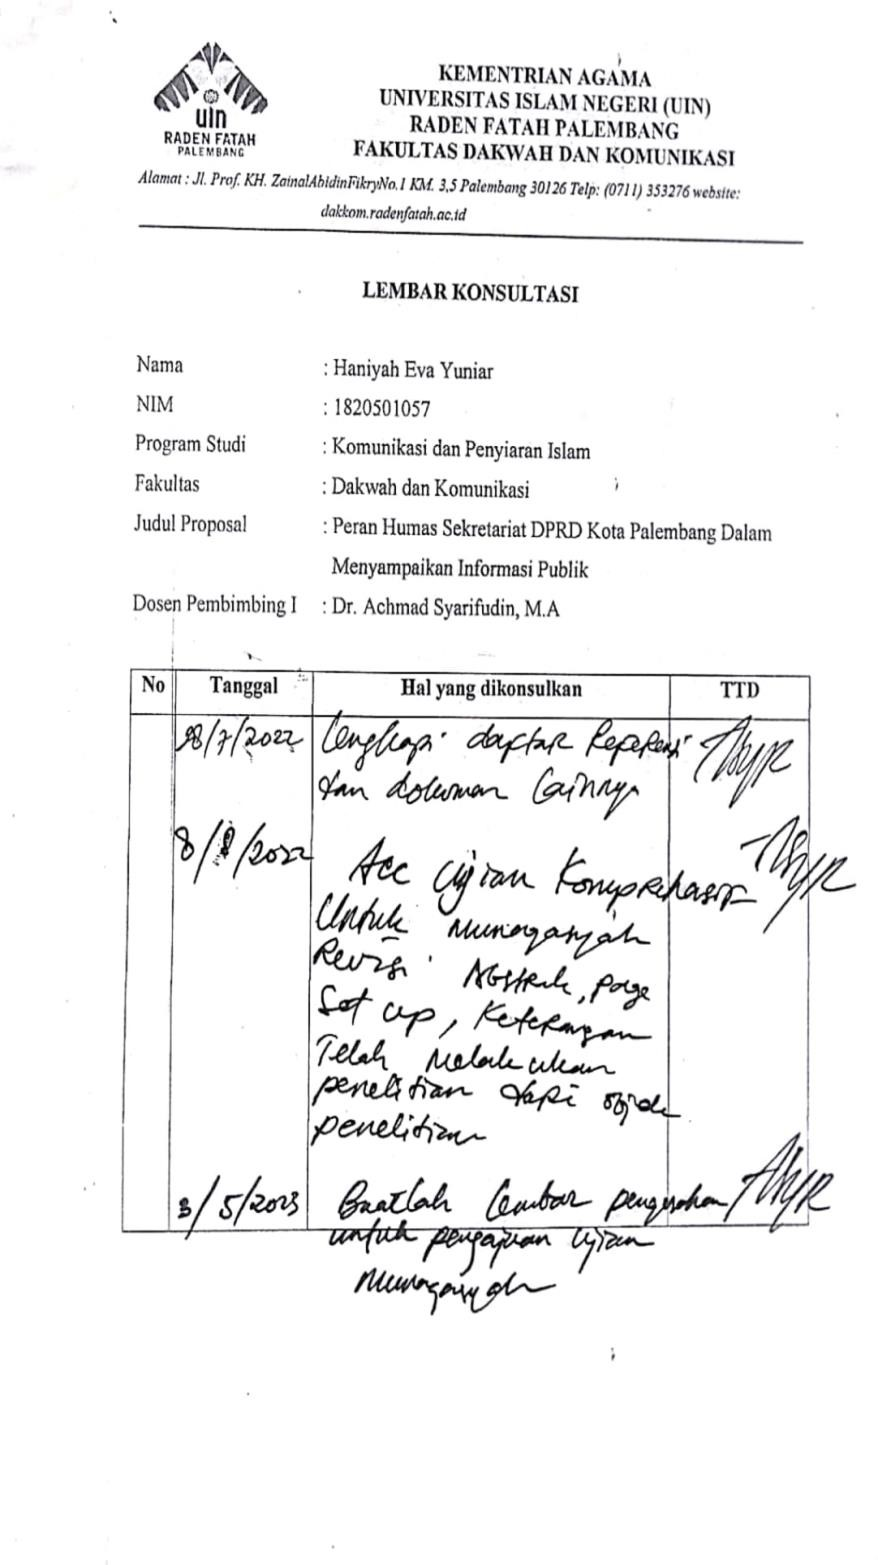 uin
RADEN FATAH
PALEMBANG
KEMENTRIAN AGAMA
UNIVERSITAS ISLAM NEGERI (UIN)
RADEN FATAH PALEMBANG
FAKULTAS DAKWAH DAN KOMUNIKASI
Alamat : Jl. Prof. KH. ZainalAbidinFikryNo.1 KM. 3,5 Palembang 30126 Telp: (0711) 353276 website:
dakkom.radenfatah.ac.id
LEMBAR KONSULTASI
Nama : Haniyah Eva Yuniar
NIM : 1820501057
Program Studi : Komunikasi dan Penyiaran Islam
Fakultas : Dakwah dan Komunikasi
Judul Proposal : Peran Humas Sekretariat DPRD Kota Palembang Dalam
Menyampaikan Informasi Publik
Dosen Pembimbing I : Dr. Achmad Syarifudin, M.A
No Tanggal Hal yang dikonsulkan TTD
/7/2022 Lengkapi daftar Referensi
dan dokumen lainnya
8/8/2022 Acc Ujian Komprehensif
Untuk Munaqasyah
Revisi Abstrak, page
Set up, Keterangan
Telah Melakukan
penelitian dari objek
penelitian
3/5/2023 Buatlah lembar pengesahan
untuk pengajuan ujian
Munaqasyah